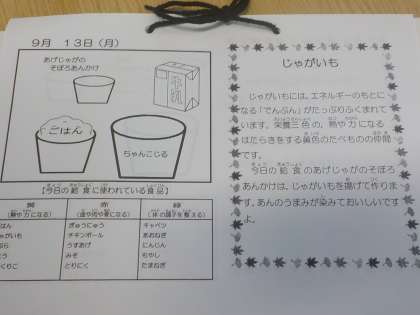 9月 13日(月)
あげじゃがの
そぼろあんかけ
牛乳
ごはん
ちゃんこじる
【今日の給食に使われている食品】
黄 赤 緑
(熱や力になる) (血や肉や骨になる) (体の調子を整える)
はん ぎゅうにゅう キャベツ
ゃがいも チキンボール あおねぎ
ぶら うすあげ にんじん
う みそ もやし
くりこ とりにく たまねぎ
じゃがいも
じゃがいもには、エネルギーのもとに
なる「でんぷん」がたっぷりふくまれて
います。栄養三色の、熱や力になる
はたらきをする黄色のたべものの仲間
です。
今日の給食のあげじゃがのそぼろ
あんかけは、じゃがいもを揚げて作りま
す。あんのうまみが染みておいしいです
よ。